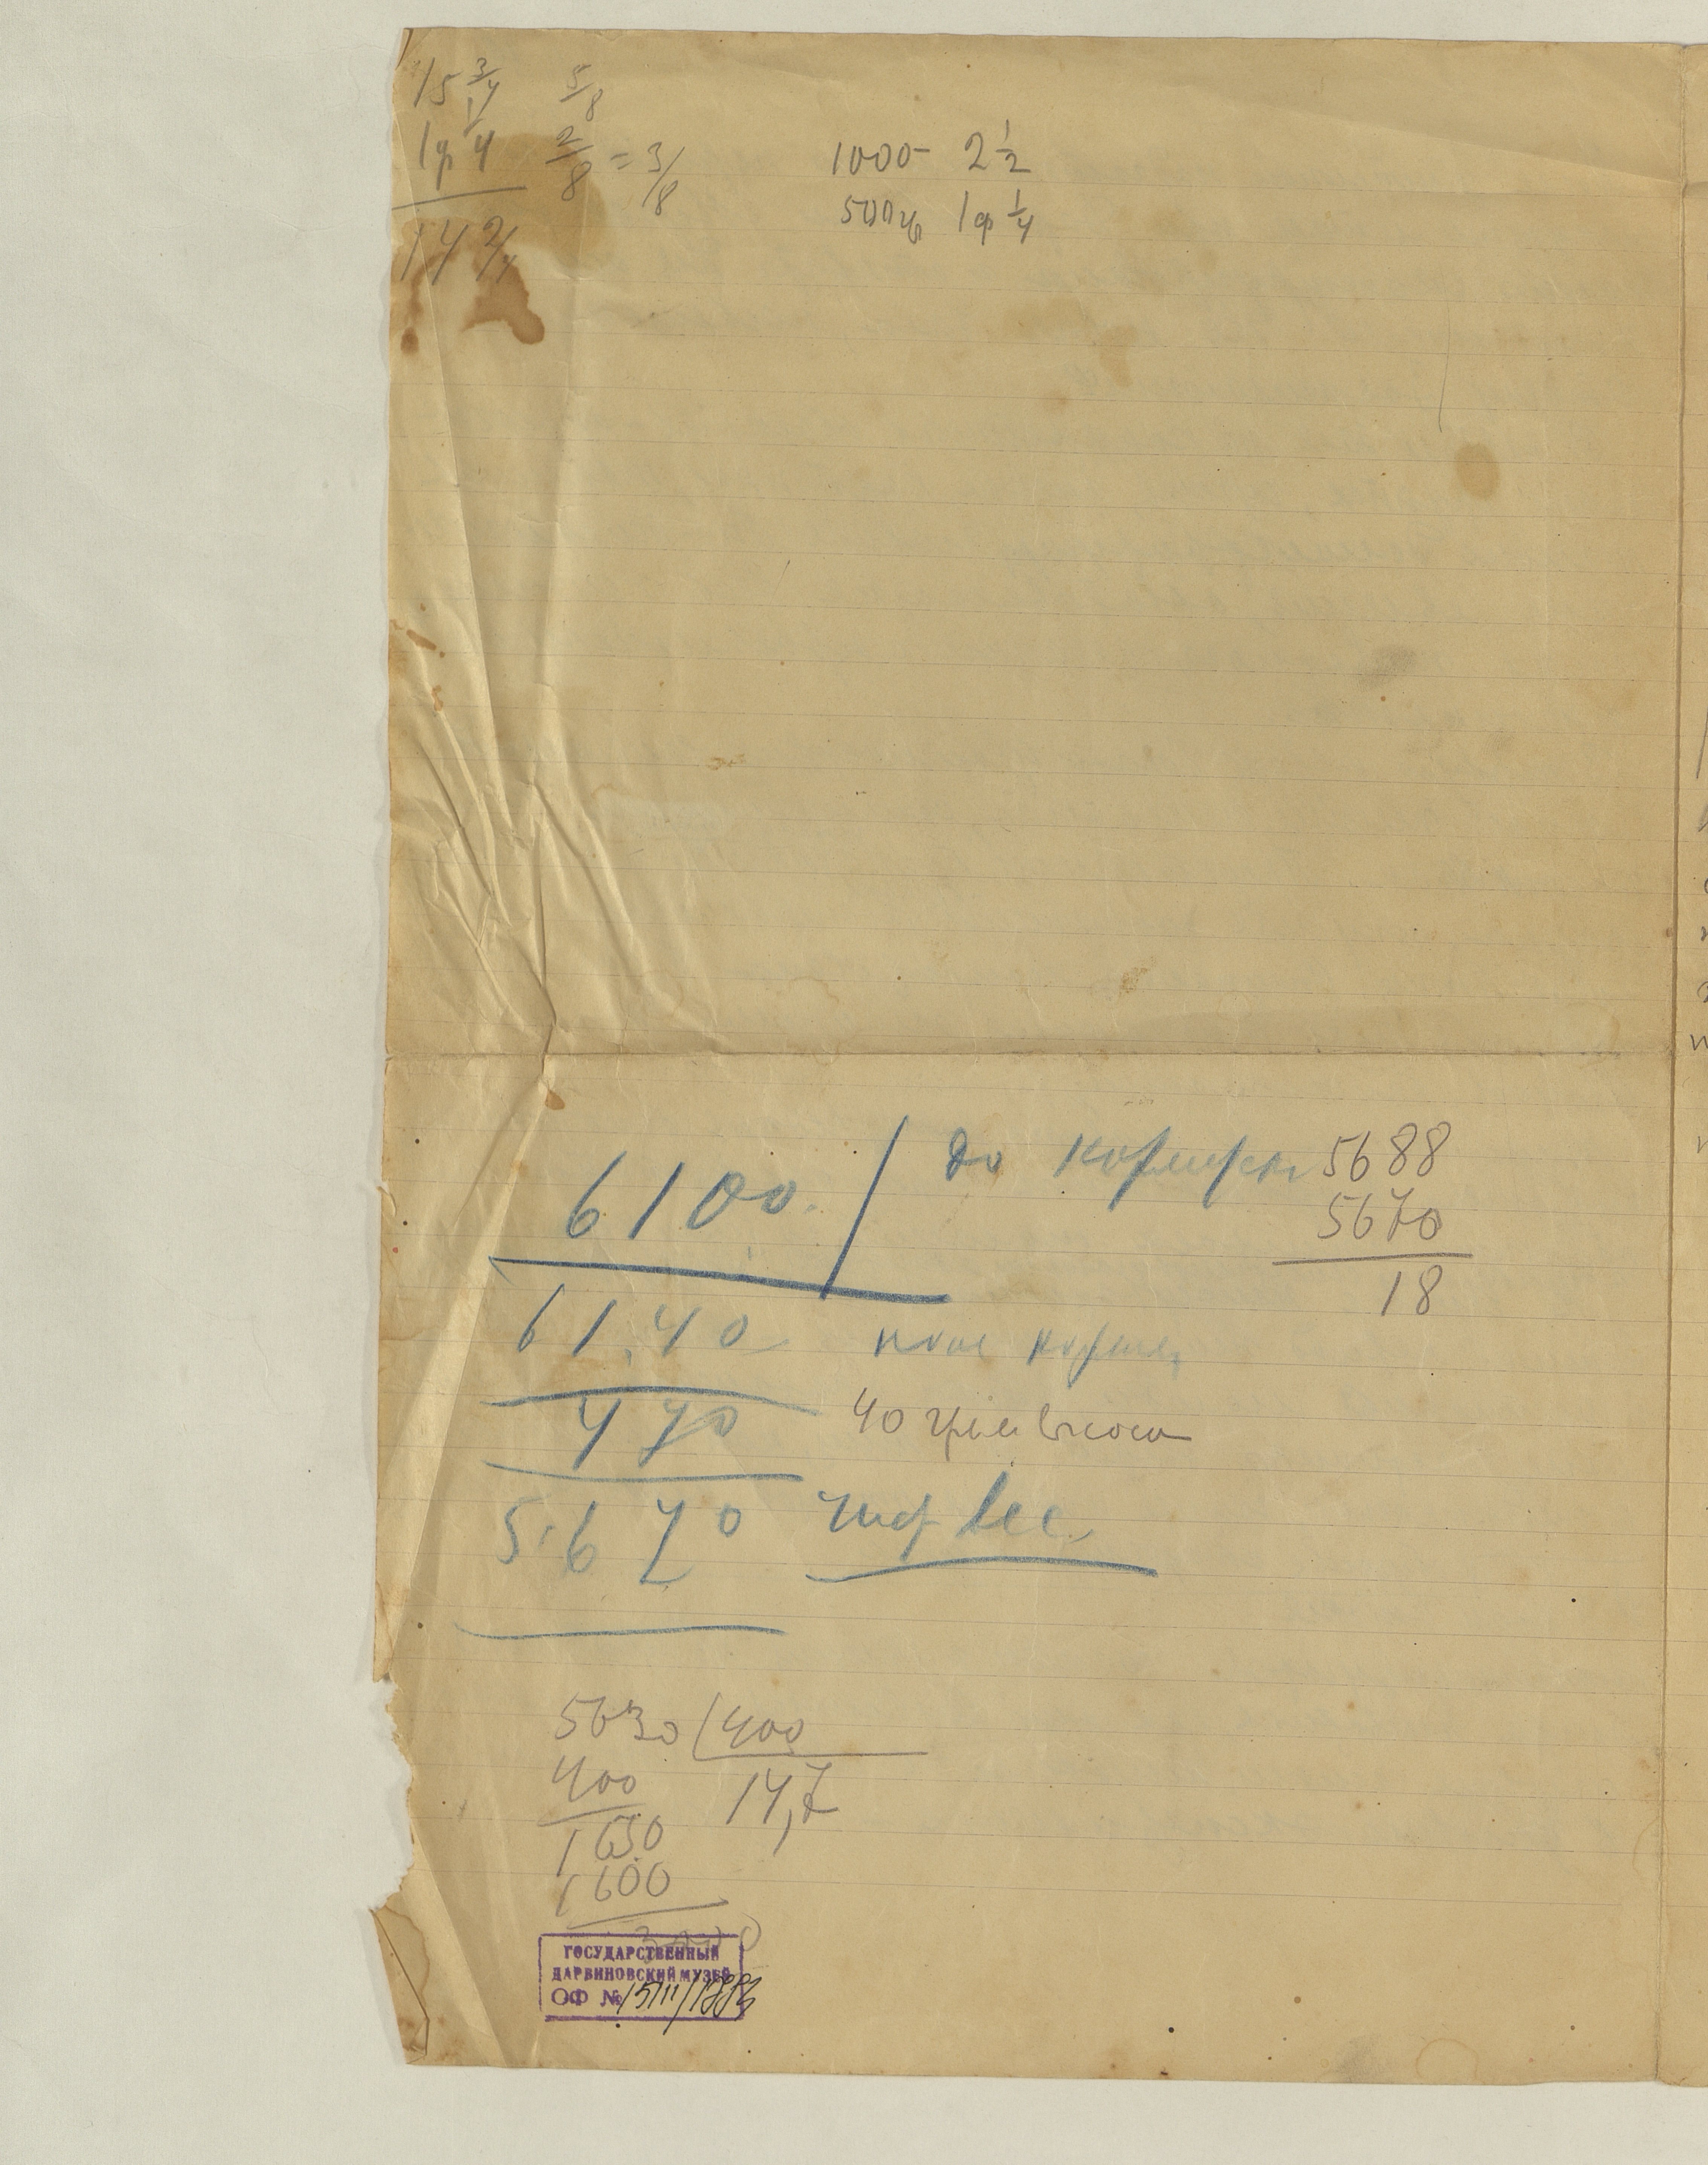 15 3/4 5/8
1ф 1/4 2/8 = 3/8
14 2/4
1000 - 2 1/2
500гр 1ф 1/4
6100. до кормежки
5688
5670
18
61.40 после кормеж
470 40 грам
5.670 чист вес
5630 400
400 14,7
1630
1600
ГОСУДАРСТВЕННЫЙ
ДАРВИНОВСКИЙ МУЗЕЙ
ОФ №